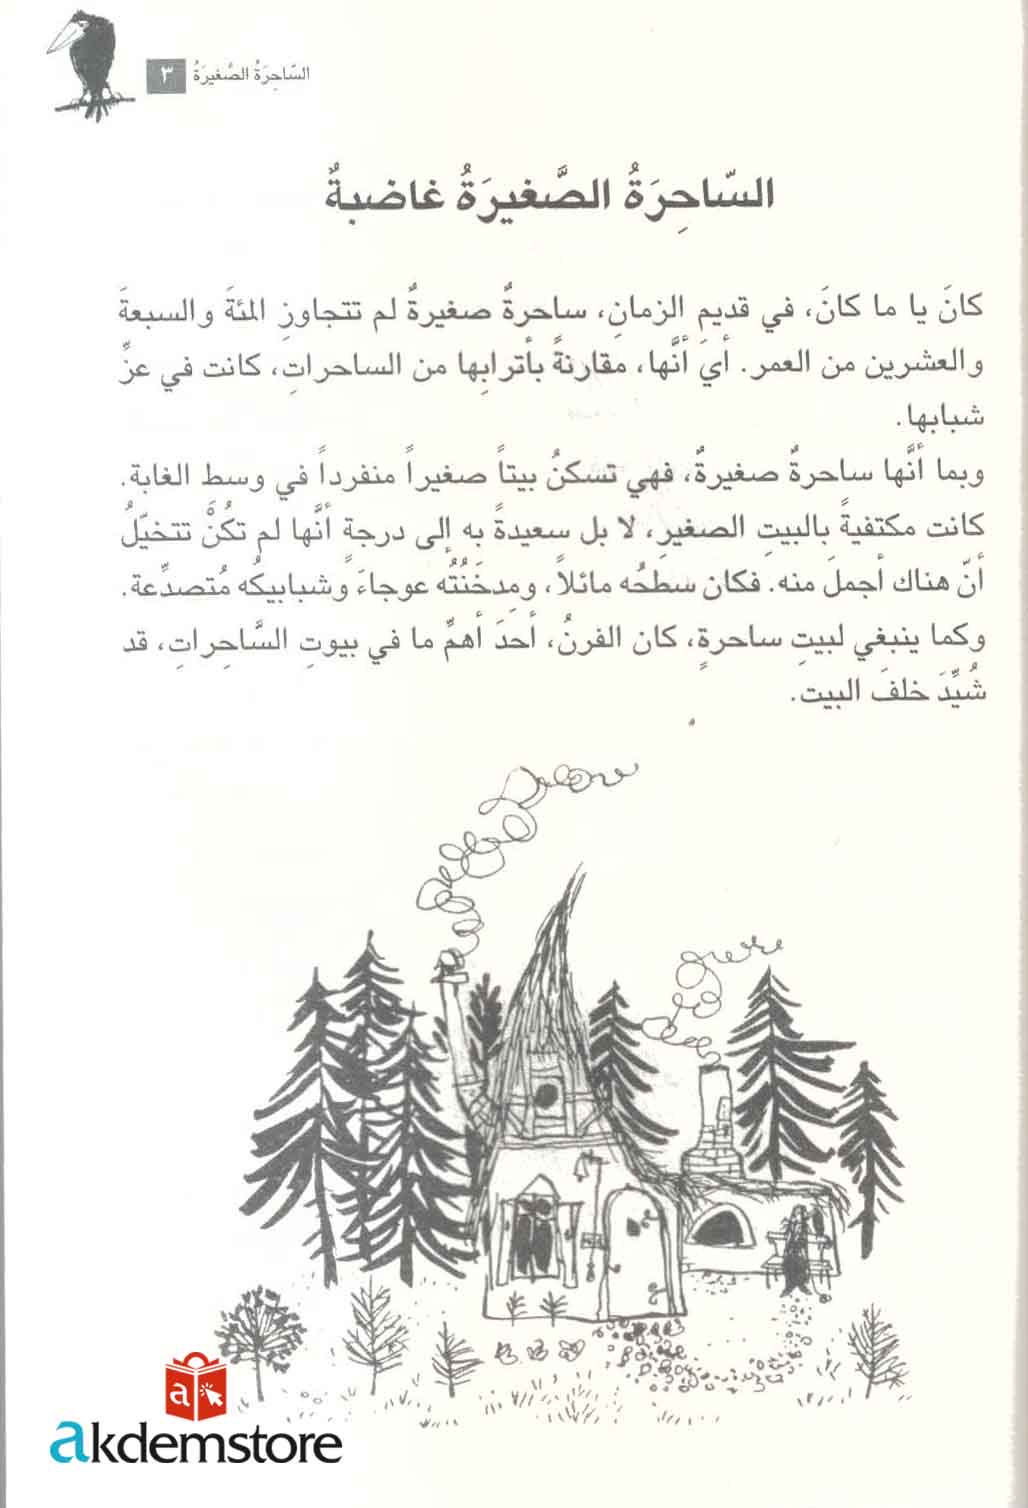 السّاحِرَةُ الصَّغيرَةُ ٣
السّاحِرَةُ الصَّغيرَةُ غاضبةٌ
كانَ يا ما كانَ، في قديم الزمانِ، ساحرةٌ صغيرةٌ لم تتجاوزِ المئةَ والسبعةَ
والعشرين من العمر. أيَ أنَّها، مقارنةً بأترابِها من الساحراتِ، كانت في عزِّ
شبابها.
وبما أنَّها ساحرةٌ صغيرةٌ، فهي تسكنُ بيتاً صغيراً منفرداً في وسط الغابة.
كانت مكتفيةً بالبيتِ الصغيرِ، لا بل سعيدةً به إلى درجةِ أنَّها لم تكُنَّ تتخيّلُ
أنّ هناك أجملَ منه. فكان سطحُه مائلاً، ومدخَنُتُه عوجاءَ وشبابيكُه مُتصدِّعة.
وكما ينبغي لبيتِ ساحرةٍ، كان الفرنُ، أحَدَ أهمِّ ما في بيوتِ السَّاحِراتِ، قد
شُيِّدَ خلفَ البيت.
a
akdemstore